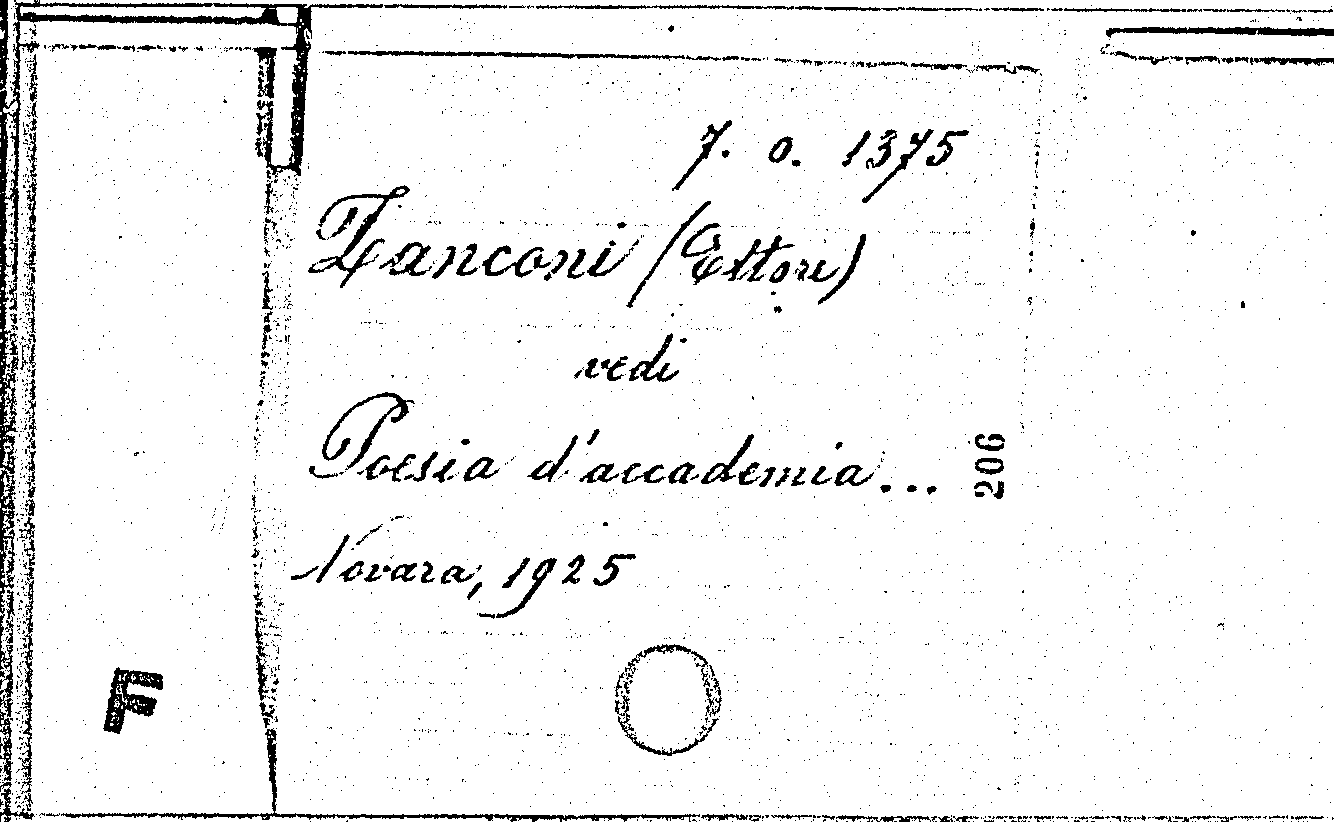 7. o. 1375
Zanconi (Ettore)
vedi
Poesia d'accademia...
206
Novara, 1925
F